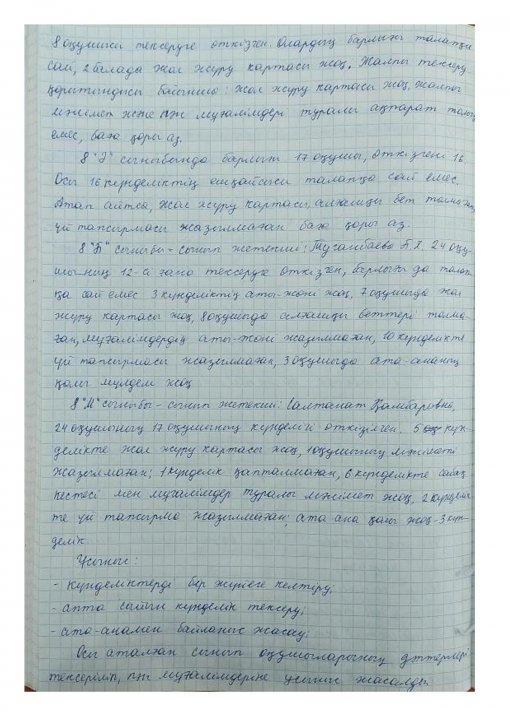 8 оқушысы тексеруге өткізген. Олардың барлығы талапқа
сай, 2 балада жол жүру картасы жоқ. Жалпы тексеру
қорытындысы бойынша: жол жүру картасы жоқ, жалпы
мәлімет және пән мұғалімдері туралы ақпарат толық
емес, баға қоры аз.
8 "Ә" сыныбында барлығы 17 оқушы, өткізгені 16.
Осы 16 күнделіктің ешқайсысы талапқа сай емес.
Атап айтсақ, жол жүру картасы, алғашқы бет
үй тапсырмасы жазылмаған баға қоры аз.
8 "Б" сыныбы - сынып жетекшісі: 24 оқу
шының 12-сі ғана тексеруге өткізген, барлығы да талап
қа сай емес. 3 күнделіктің аты-жөні жоқ, 7 оқушыда жол
жүру картасы жоқ, 8 оқушыда алғашқы беттері толма
ған, мұғалімдердің аты-жөні жазылмаған, 10 күнделікте
үй тапсырмасы жазылмаған, 3 оқушыда ата-ананың
қолы мүлдем жоқ.
8 "М" сыныбы - сынып жетекшісі: Салтанат Қамбаровна,
24 оқушының 17 оқушының күнделігі өткізілген. 5 күн-
делікте жол жүру картасы жоқ, 1 оқушының мәліметі
жазылмаған; 1 күнделік қапталмаған, 6 күнделікте сабақ
кестесі мен мұғалімдер туралы мәлімет жоқ, 2 күнделік
те үй тапсырма жазылмаған; ата ана қолы жоқ - 3 күн
делік.
Ұсыныс:
- күнделіктерді бір жүйеге келтіру;
- апта сайын күнделік тексеру;
- ата-анамен байланыс жасау;
Осы аталған сынып оқушыларының дәптерлері
тексеріліп, пән мұғалімдеріне ұсыныс жасалды.